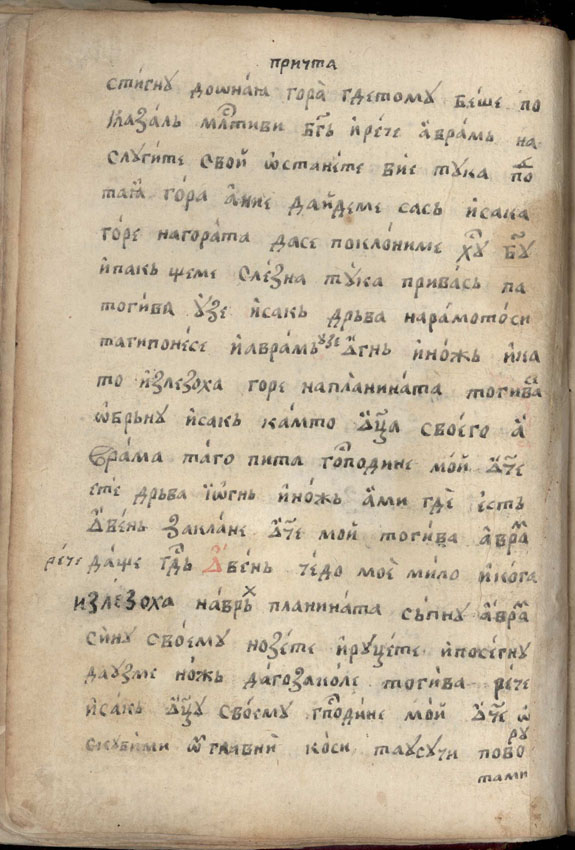 причта
стигну доѡнаꙗ гора̀ гдетому беше по
каза́ль млⷭ҇тиви бг҃ь и҆рѐче а҆вра́мь на
слугите свои̂ ѡ҆стане́те вие тука поⷣ
таꙗ҆ го́ра а҆ нїе да́идеме сась и҆сака
го́ре нагора́та дасе покло́ниме хⷭ҇у бг҃у
и҆пакь щеме слезна ту́ка привась па
тоги́ва у҆зе и҆сакь дрьва нара́мото́си
татипоне́се и҆аврамь узе ѡ҆гнь и҆но́жь и҆ка
то и҆злезоха горе напла́нината тогива са
ѡ҆брьну и҆сакь ка́мто ѿц҃а своего а҆
врама таго пита го҇сподине мо́й ѿ҆ч҃е
етѐ дрьва и҆ѡгнь и҆но́жь а҆ми гдѐ есть
ѡ҆ве́нь закла́не ѿ҆ч҃е мой тоги́ва а҆враⷨ
рече да́ще гдⷭ҇ь ѡ҆ве́нь че́до моѐ ми́ло и҆кога
изле́зоха на́врьⷯ планината са́пну а҆враⷨ
си҃ну сво́ему нозе́те и҆руце́те и҆посе́гну
даузме но́жь да́гозако́ле тоги́ва рѐче
и҆са́кь ѿц҃у своему гпⷭ҇оди́не мо́й ѿ҆ч҃е ѡ҆
скуби́ми ѿ гла́вни ко́си таусучи поворо
тами